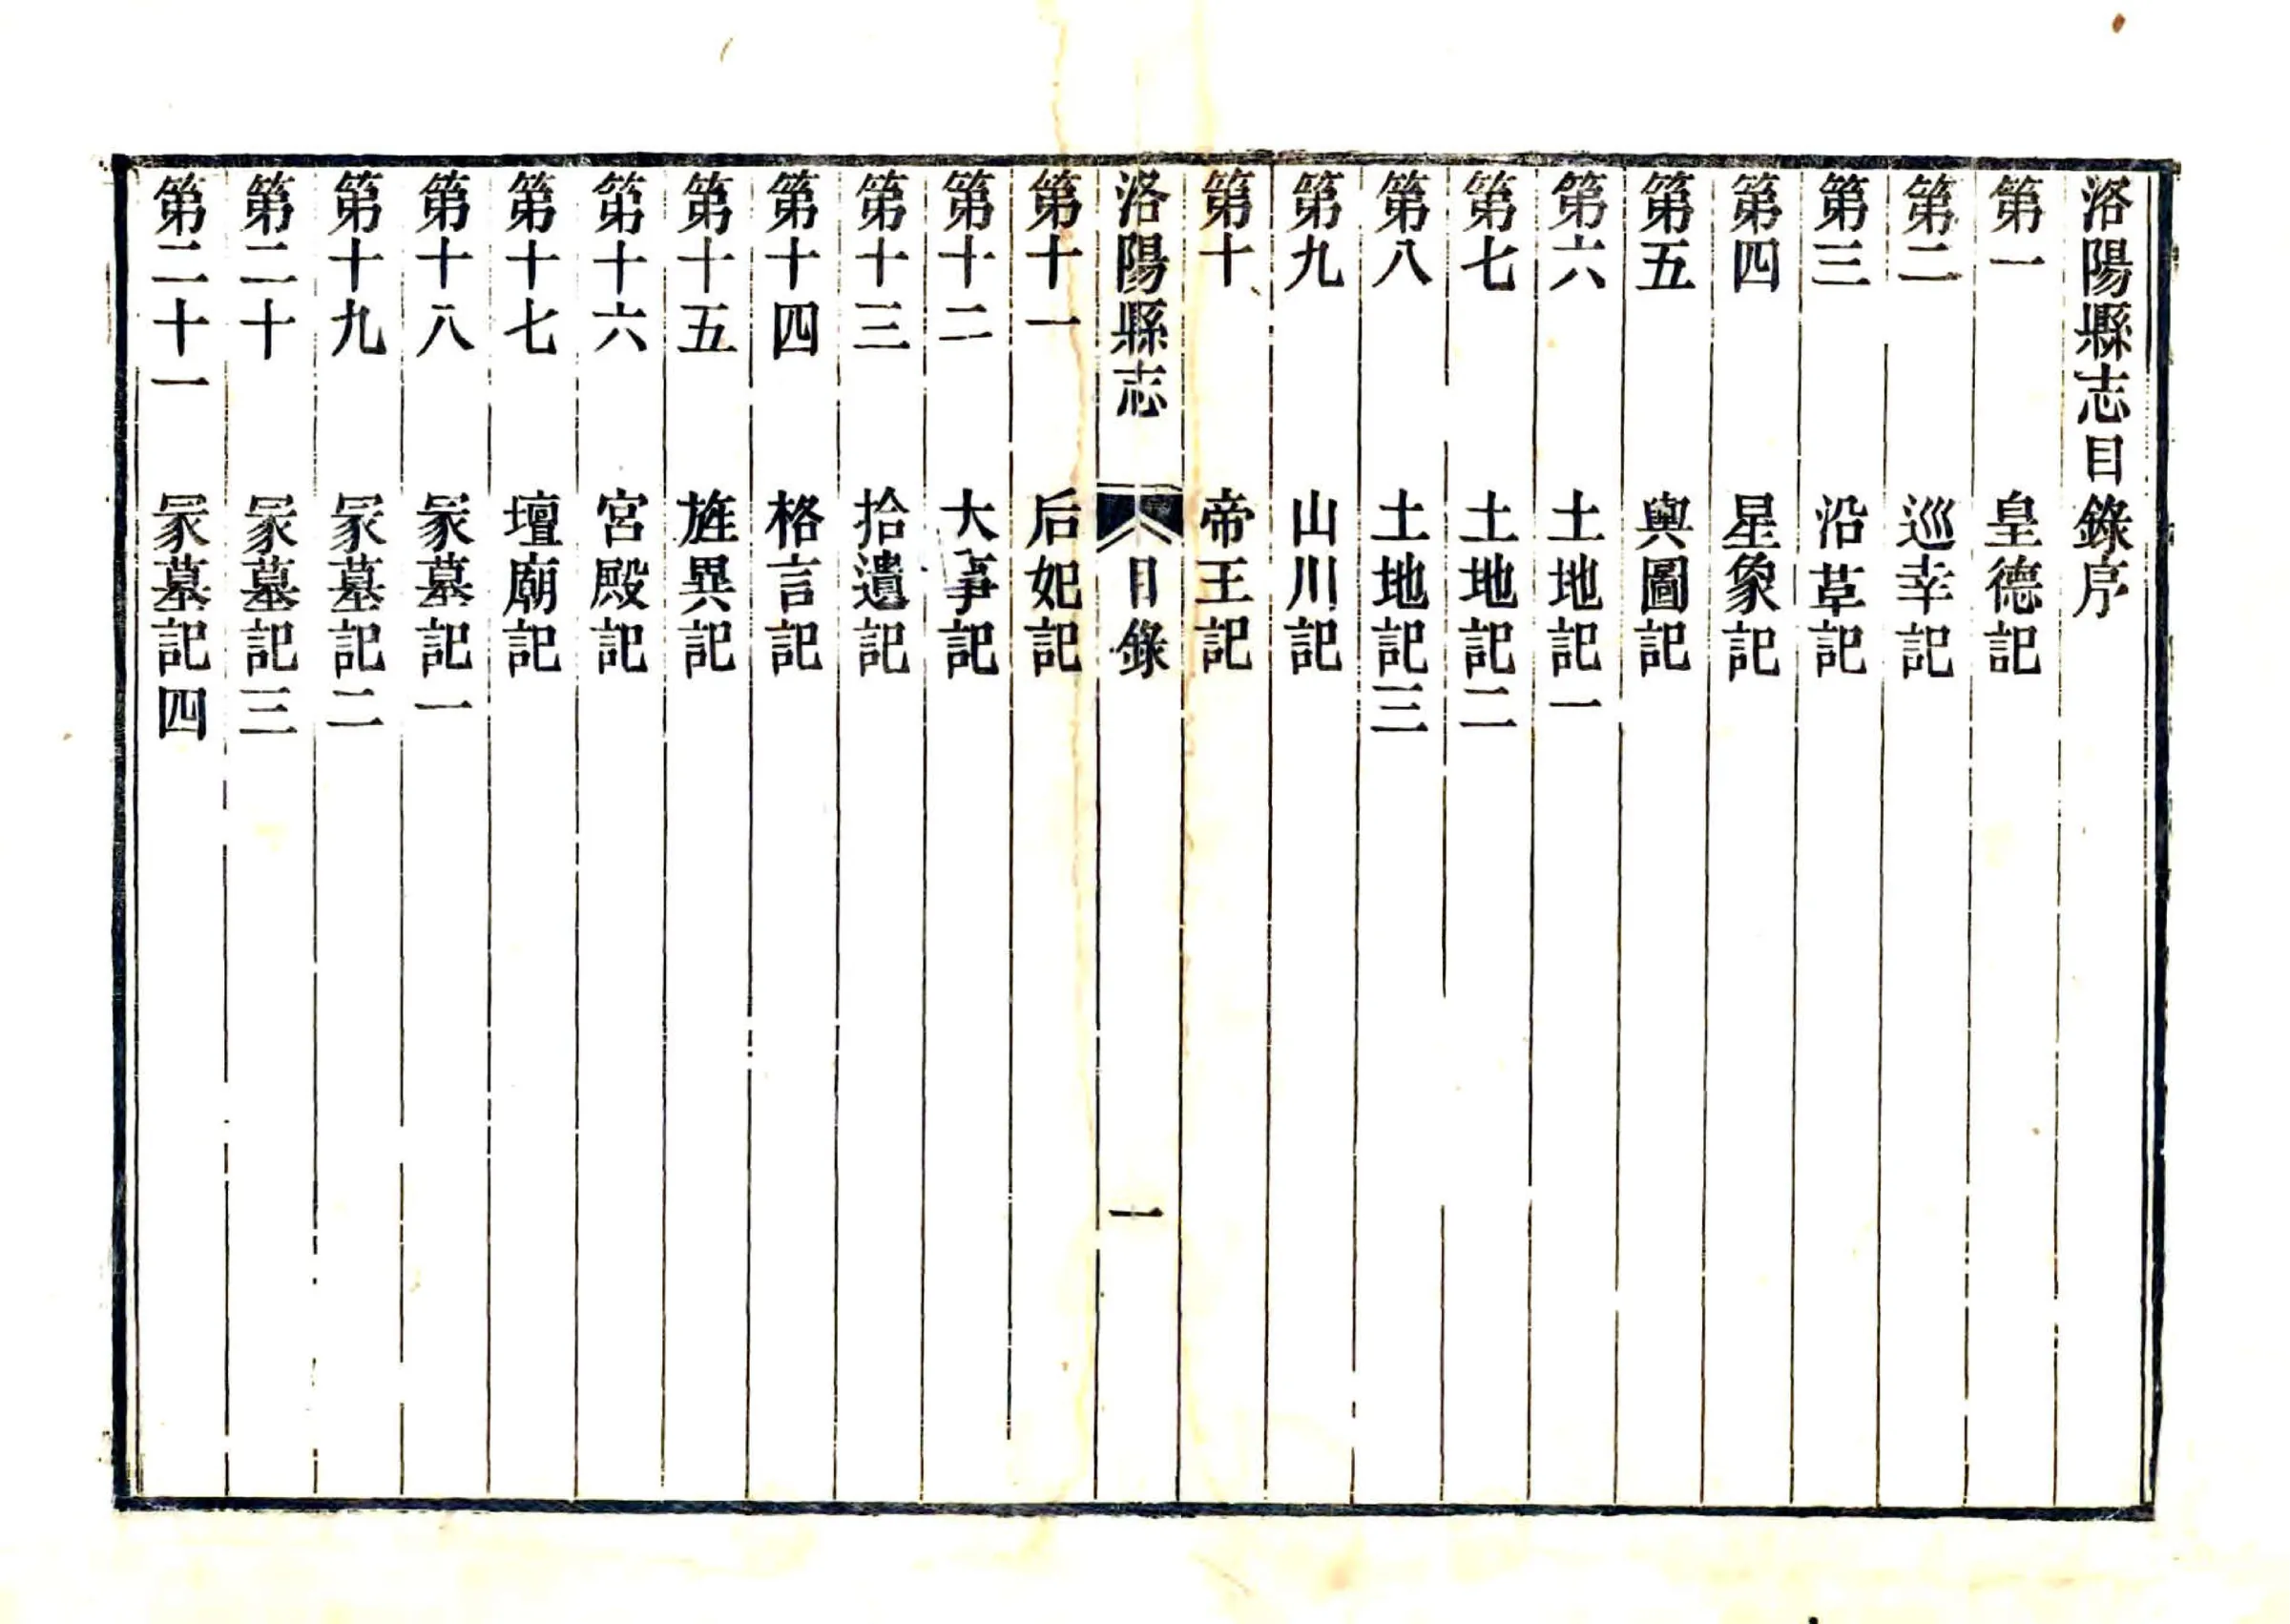 洛陽縣志目錄序
第一 皇德記
第二 巡幸記
第三 沿革記
第四 星象記
第五 輿圖記
第六 土地記一
第七 土地記二
第八 土地記三
第九 山川記
第十 帝王記
洛陽縣志 目錄 一
第十一 后妃記
第十二 大事記
第十三 拾遺記
第十四 格言記
第十五 旌異記
第十六 宮殿記
第十七 壇廟記
第十八 冢墓記一
第十九 冢墓記二
第二十 冢墓記三
第二十一 冢墓記四